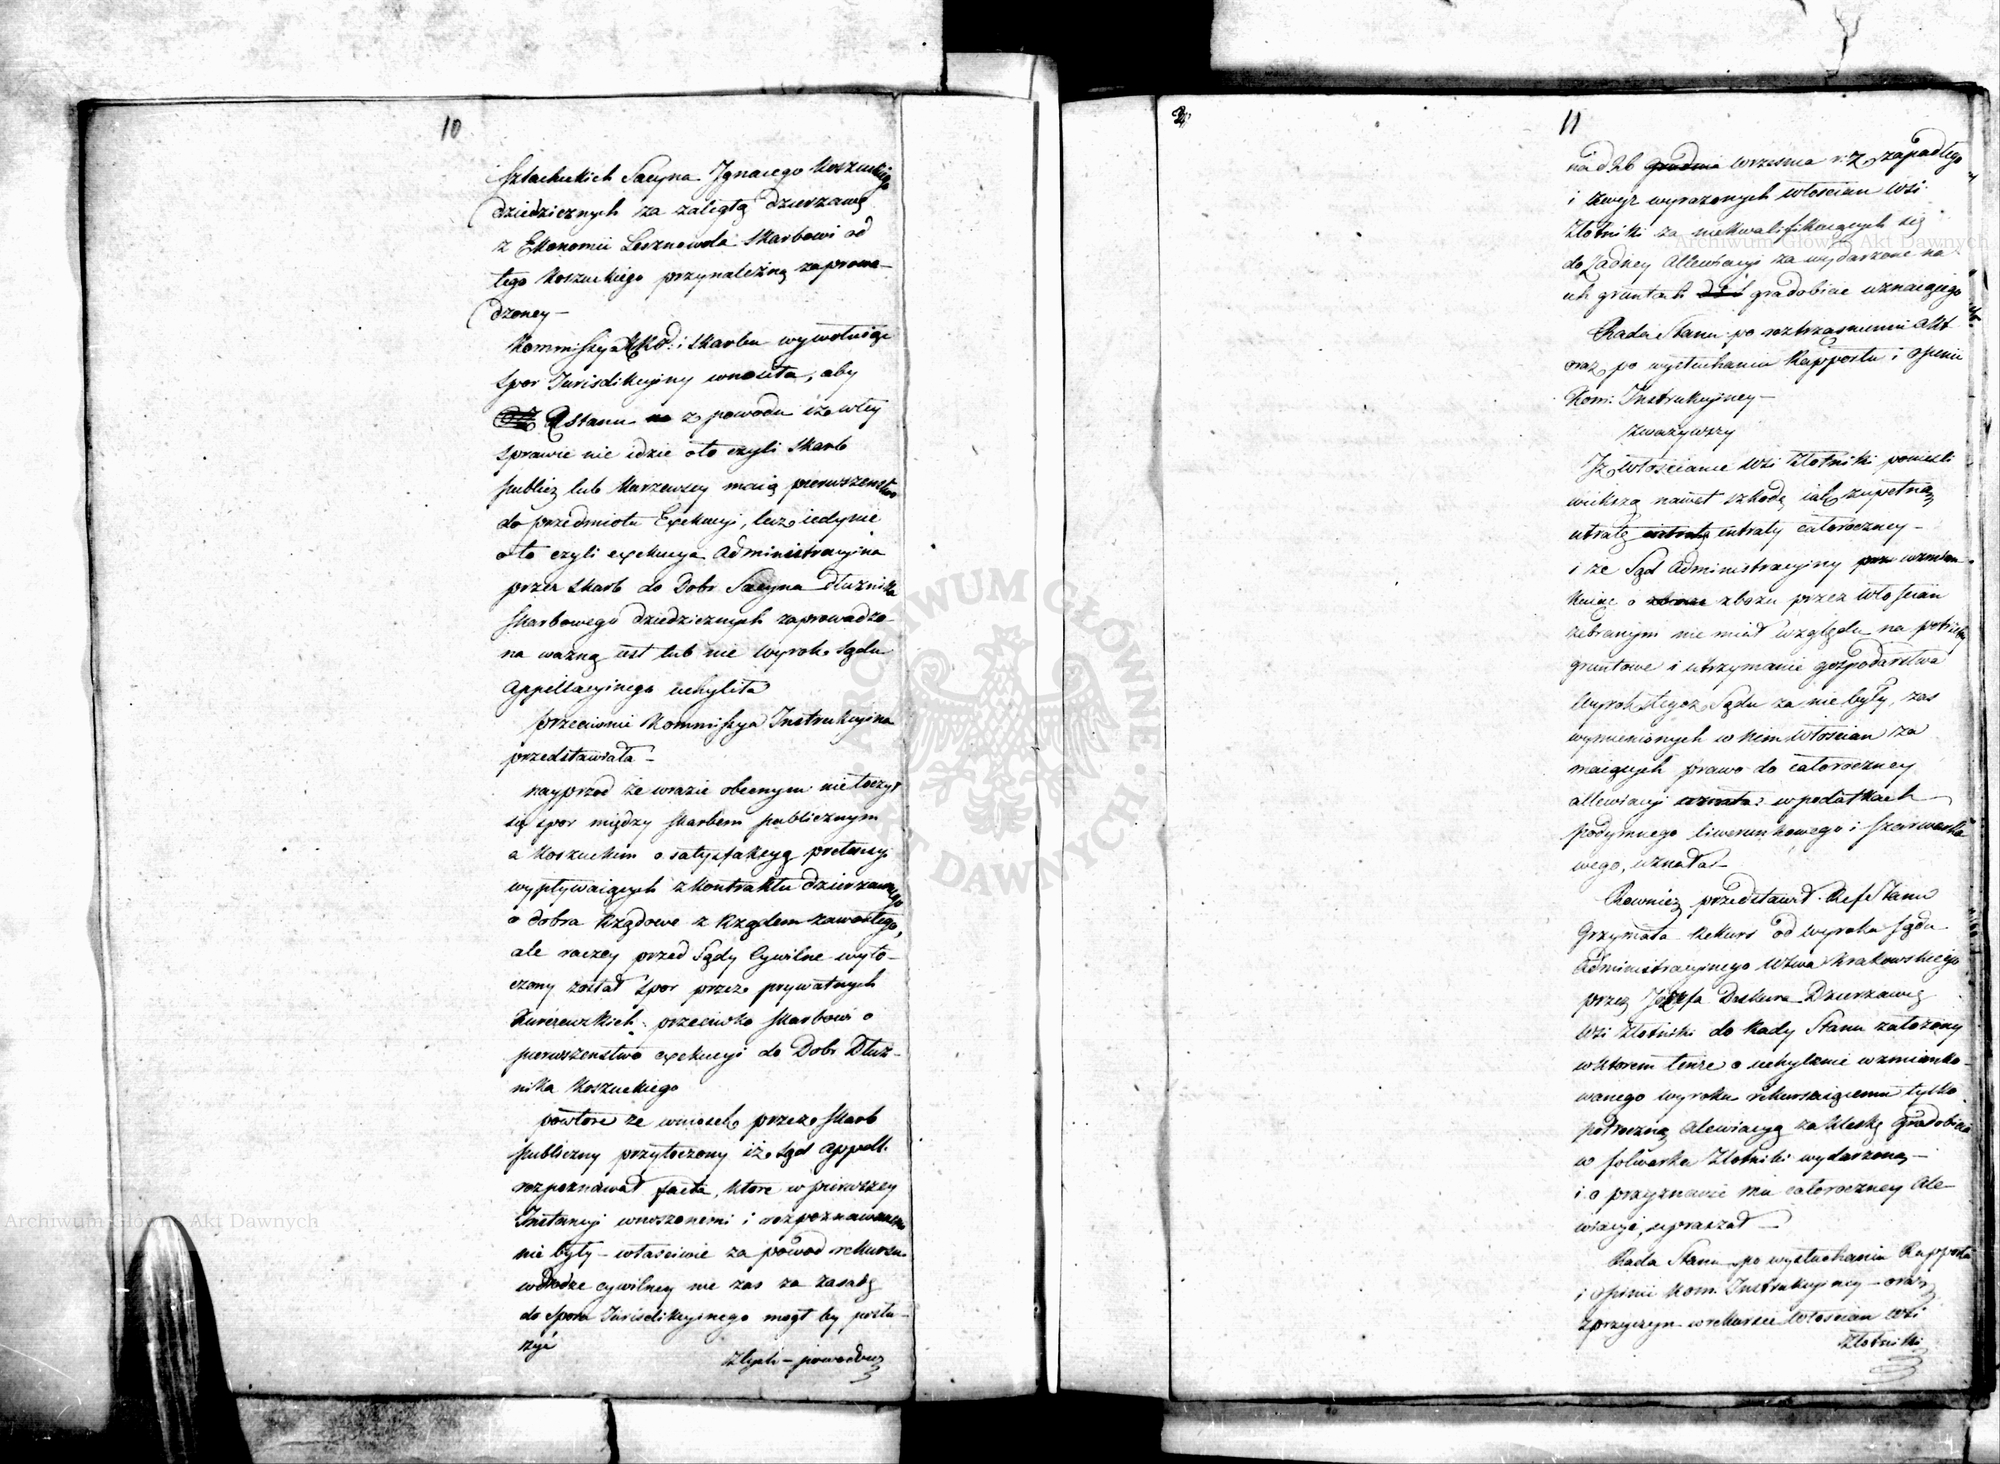 10
szlacheckich Sacyna Ignacego Koszuckiego
dziedzicznych za zaległą dzierzawę
z Ekonomii Lesznowola Skarbowi od
tego Koszuckiego przynależną zaprowa-
dzoney -
Kommissya i Skarbu wywołuiąc
spor Jurisdikcyiny wnosiła, aby
R Stanu z powodu iż w tey
sprawie nie idzie o to czyli Skarb
publicz lub Kurzewscy maią pierwszenstwo
do przedmiotu Exekucyi, lecz iedynie
o to czyli exekucya Administracyina
przez Skarb do Dobr Sacyna Dłużnika
Skarbowego dziedzicznych zaprowadzo-
na ważną iest lub nie wyrok Sądu
Appellacyinego uchyliła
przeciwnie Kommissya Instrukcyina
przedstawiała -
nayprzod że w razie obecnym nie toczy
się spor między Skarbem publicznym
a Koszuckim o satysfakcyą pretensyi
wypływaiących z kontraktu dzierzawnego
o dobra Rządowe z Rządem zawartego,
ale raczey przed Sądy Cywilne wyto-
czony został spor przez prywatnych
Kurzewskich przeciwko Skarbowi o
pierwszenstwo exekucyi do Dobr Dłuż-
nika Koszuckiego
powtore że wniosek przez Skarb
publiczny przytoczony iż Sąd appell.
rozpoznawał facta, ktore w pierwszey
Instancyi wnoszonemi i rozpoznawanemi
nie były - właściwie za powod rekursu
w drodze cywilney nie zas za zasadę
do sporu Jurisdikcyinego mogł by posłu-
żyć
Z tych - powodow
11
na d 26 grudnia wrzesnia r. z. zapadłego
i zwyż wyrażonych włoscian wsi
Złotniki za niekwalifikuiących się
do żadney Allewiacyi za wydarzone na
ich gruntach gradobicie uznaiącego
Rada Stanu po roztrząsnieniu Akt
oraz po wysłuchaniu Rapportu i opinii
Kom: Instrukcyiney -
Zważywszy
Iż włościanie wsi Złotniki ponieśli
większą nawet szkodę iak zupełną
utratę intraty całoroczney -
i ze Sąd Administracyiny wzmian-
kuiąc o zbożu przez włościan
zebranym nie miał względu na potrzeby
gruntowe i utrzymanie gospodarstwa
Wyrok tegoż Sądu za nie były, zas
wymienionych w nim włoscian za
maiących prawo do całoroczney
allewiacyi w podatkach
podymnego liwerunkowego i szarwarko
wego, uznała -
Rownież przedstawił Ref Stanu
Grzymała Rekurs od wyroku Sądu
Administracyinego Wdztwa Krakowskiego
przez Józefa Deskura Dzierzawcę
wsi Złotniki do Rady Stanu założony
w ktorem tenże o uchylenie wzmianko-
wanego wyroku rekursuiącemu tylko
połroczną alewiacyą za klęskę gradobicia
w folwarku Złotniki wydarzoną -
i o przyznanie mu całoroczney ale
wiacyi, upraszał -
Rada Stanu po wysłuchaniu Rapportu
i opinii Kom. Instrukcyiney - oraz
z przyczyn w rekursie włoscian wsi
Złotniki
Archiwum Główne Akt Dawnych
Archiwum Główne Akt Dawnych
ARCHIWUM GŁÓWNE AKT DAWNYCH